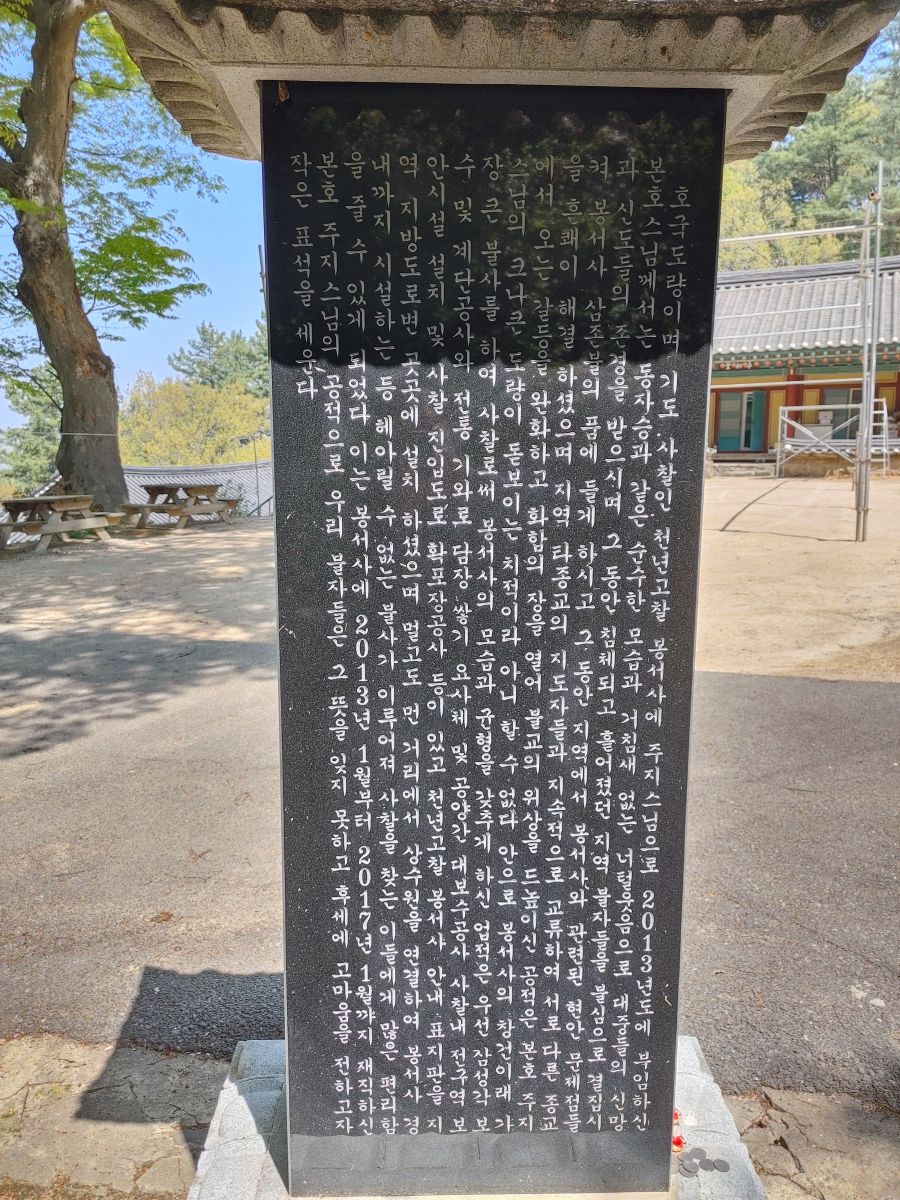 호국도량이며 기도 사찰인 천년고찰 봉서사에 주지스님으로 2013년도에 부임하신
본호스님께서는 동자승과 같은 순수한 모습과 거침새 없는 너털웃음으로 대중들의 신망
과 신도들의 존경을 받으시며 그 동안 침체되고 흩어졌던 지역 불자들을 불심으로 결집시
켜 봉서사 삼존불의 품에 들게 하시고 그 동안 지역에서 봉서사와 관련된 현안 문제점들
을 흔쾌이 해결하셨으며 지역 타종교의 지도자들과 지속적으로 교류하여 서로 다른 종교
에서 오는 갈등을 완화하고 화합의 장을 열어 불교의 위상을 드높이신 공적은 본호 주지
스님의 크나큰 도량이 돋보이는 치적이라 아니 할 수 없다 안으로 봉서사의 창건이래 가
장 큰 불사를 하여 사찰로써 봉서사의 모습과 균형을 갖추게 하신 업적은 우선 삼성각 보
수 및 계단공사와 전통 기와로 담장 쌓기 요사체 및 공양간 대보수공사 사찰내 전구역 보
안시설 설치 및 사찰 진입도로 확포장공사 등이 있고 천년고찰 봉서사 안내 표지판을 지
역 지방도로변 곳곳에 설치 하셨으며 멀고도 먼 거리에서 상수원을 연결하여 봉서사 경
내까지 시설하는 등 헤아릴 수 없는 불사가 이루어져 사찰을 찾는 이들에게 많은 편리함
을 줄 수 있게 되었다 이는 봉서사에 2013년 1월부터 2017년 1월까지 재직하신
본호 주지스님의 공적으로 우리 불자들은 그 뜻을 잊지 못하고 후세에 고마움을 전하고자
작은 표석을 세운다